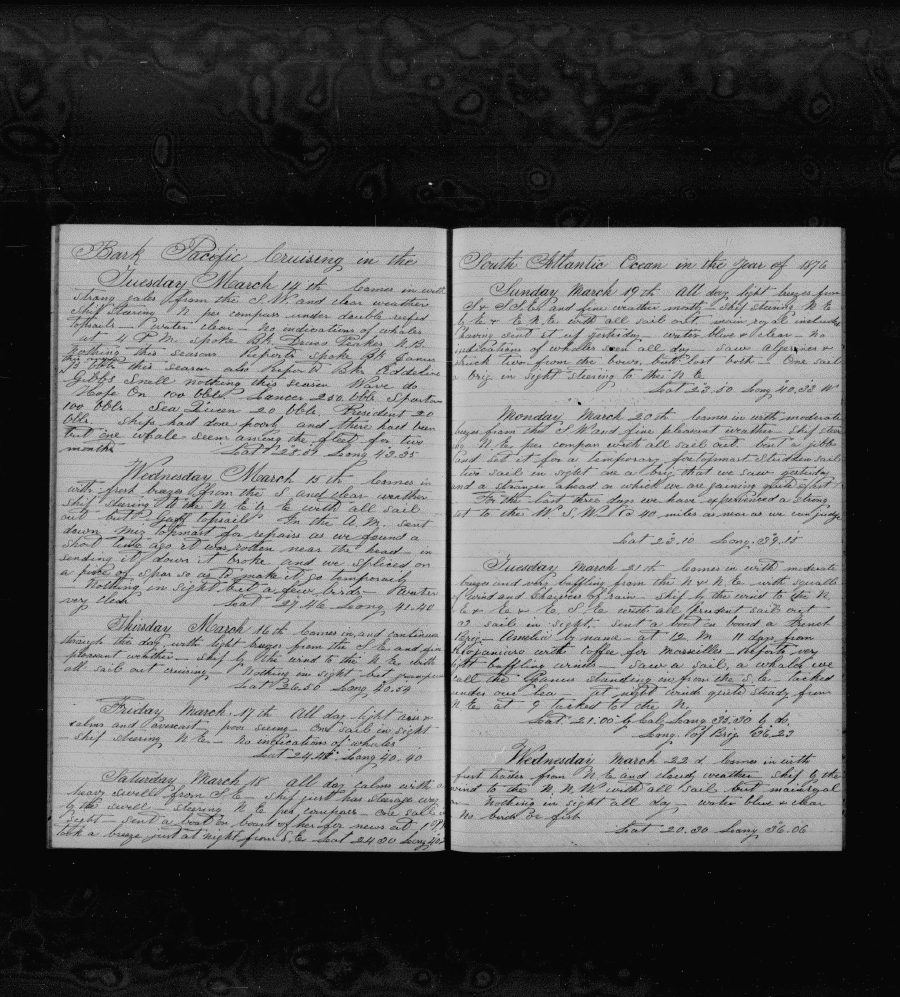 Bark Pacific Cruising in the
Tuesday March 14th Comes in with
strong gales from the S.W and clear weather
Ship steering N per compass under double reefed
topsails — water clear — No indications of whales
at 4 P.M. spoke Bk. Draco Peaker N.B.
Nothing this season Reports Spoke Bk
bbls this season also Reports Bk. Addeline
Gibbs Small nothing this season Wave do
Hope On 100 bbls Lancer 250 bbls Spartan
100 bbls Sea Queen 20 bbls President 20
bbls. ships had done poorly and there had been
but one whale seen among the fleet for two
months Lat 28.59 Long 42.35
Wednesday March 15th Comes in
with fresh breezes from the S and clear weather
Ship steering to the N E b E with all sail
out but Gaff topsails In the A.M. sent
down Miz topmast for repairs as we found a
short time ago it was rotten near the head — in
sending it down it broke and we spliced on
a piece of spar so as to make it go temporarily
Nothing in sight but a few birds — Water
very clear Lat 27.46 Long 41.40
Thursday March 16th Comes in and continues
through the day with light breezes from the S E and fine
pleasant weather — ship by the wind to the N.E. with
all sail out cruising — Nothing in sight but
Lat 26.50 Long 40.54
Friday March 17th All day light airs &
calms and overcast — poor seeing — One sail in sight
— ship steering N.E. — No indications of whales
Lat 24.48 Long 40.40
Saturday March 18 All day calms with a
heavy swell from S.E — ship just has steerage way
by the swell — steering N E per compass — One sail in
sight — sent a boat on board of her for news at 1 P.M
took a breeze just at night from S.E. Lat 24.20 Long 40
South Atlantic Ocean in the Year of 1876
Sunday March 19th All day light breezes from
S & S S E and fine weather mostly — Ship steering N E
b E & E N E with all sail out, main royal included
having sent it up yesterday — water blue & clear — No
indications of whales seen all day — saw Algerines &
struck two from the bows, but lost both — One sail
a brig in sight steering to the N E
Lat 23.50 Long 40.32 W
Monday March 20th Comes in with moderate
breezes from the S W and fine pleasant weather — ship steer
N. E. per compass with all sail out. bent a jibb
and set it for a temporary foretopmast studden sail
two sail in sight one a brig that we saw yesterday
and a stranger ahead on which we are gaining quite fast
For the last three days we have experienced a strong
set to the W S. W. 40 miles as near as we can judge
Lat 23.10 Long. 39.15
Tuesday March 21th Comes in with moderate
breezes and very baffling from the N & N E — with squalls
of wind and showers of rain — ship by the wind to the N.
E & E & E S E with all prudent sail out
2 sail in sight. sent a boat on board a French
Brig — Amelie by name — at 12 M 11 days from
Riojaniero with Coffee for Marseilles — Reports very
light baffling winds — Saw a sail, a whaler we
call the standing in from the S.E — tacked
under our lea — at night winds quite steady from
N E at 9 tacked to the N.
Lat 21.00 by Cal. Long 35.30 by do.
Long of Brig 36.23
Wednesday March 22d Comes in with
fresh trades from N E and cloudy weather — ship by the
wind to the N. N W with all sail but mainroyal
— Nothing in sight all day — water blue & clear
No birds or fish
Lat 20.30 Long 36.06